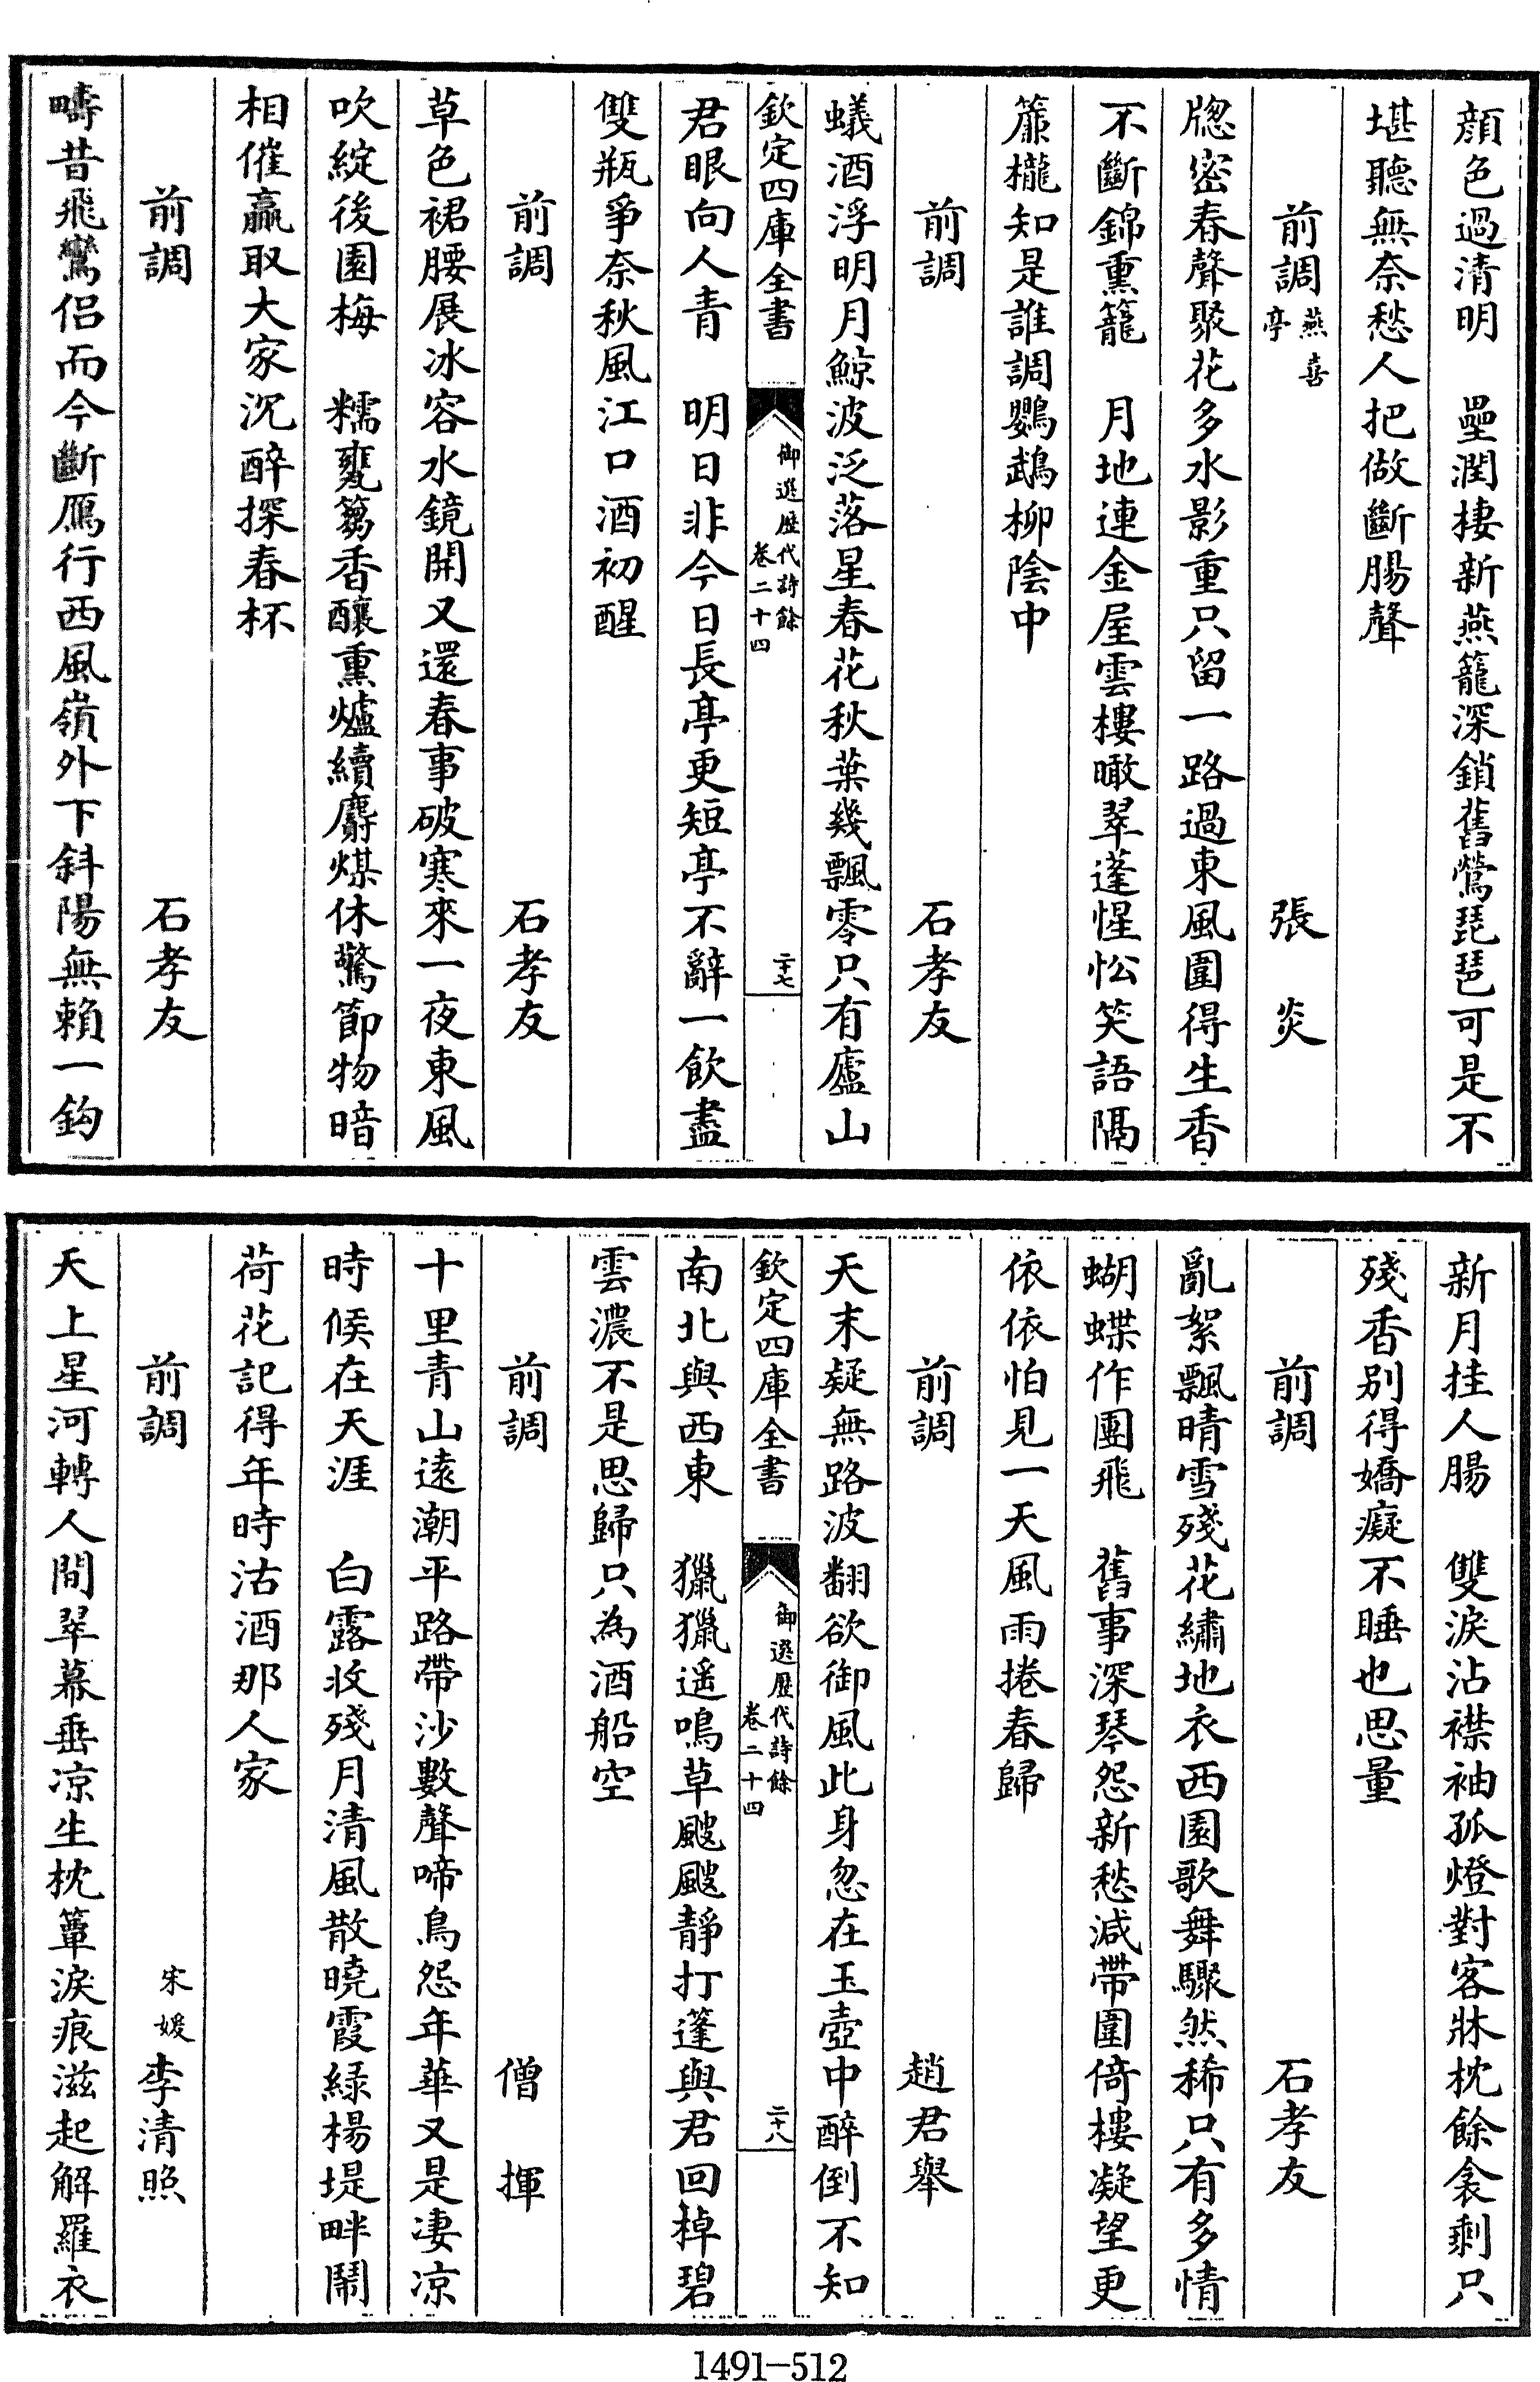 顔色過清明　壘潤棲新燕籠深鎖舊鶯琵琶可是不
堪聽無奈愁人把做斷腸聲
前調燕喜亭　張炎
窻密春聲聚花多水影重只留一路過東風圍得生香
不斷錦熏籠　月地連金屋雲樓瞰翠蓬惺忪笑語隔
簾櫳知是誰調鸚鵡柳陰中
前調　石孝友
蟻酒浮明月鯨波泛落星春花秋葉幾飄零只有廬山
欽定四庫全書
御選歷代詩餘
卷二十四
二十七
君眼向人青　明日非今日長亭更短亭不辭一飲盡
雙瓶爭奈秋風江口酒初醒
前調　石孝友
草色裙腰展冰容水鏡開又還春事破寒來一夜東風
吹綻後園梅　糯甕篘香釀熏爐續麝煤休驚節物暗
相催贏取大家沉醉探春杯
前調　石孝友
疇昔飛鸞侶而今斷鴈行西風嶺外下斜陽無賴一鈎
新月挂人腸　雙淚沾襟袖孤燈對客牀枕餘衾剩只
殘香別得嬌癡不睡也思量
前調　石孝友
亂絮飄晴雪殘花繡地衣西園歌舞驟然稀只有多情
蝴蝶作團飛　舊事深琴怨新愁減帶圍倚樓凝望更
依依怕見一天風雨捲春歸
前調　趙君舉
天末疑無路波翻欲御風此身忽在玉壺中醉倒不知
欽定四庫全書
御選歷代詩餘
卷二十四
二十八
南北與西東　獵獵遥鳴草颼颼靜打蓬與君回棹碧
雲濃不是思歸只為酒船空
前調　僧揮
十里青山遠潮平路帶沙數聲啼鳥怨年華又是凄凉
時候在天涯　白露收殘月清風散曉霞綠楊堤畔鬧
荷花記得年時沽酒那人家
前調　宋媛李清照
天上星河轉人間翠幕垂凉生枕簟淚痕滋起解羅衣
1491-512